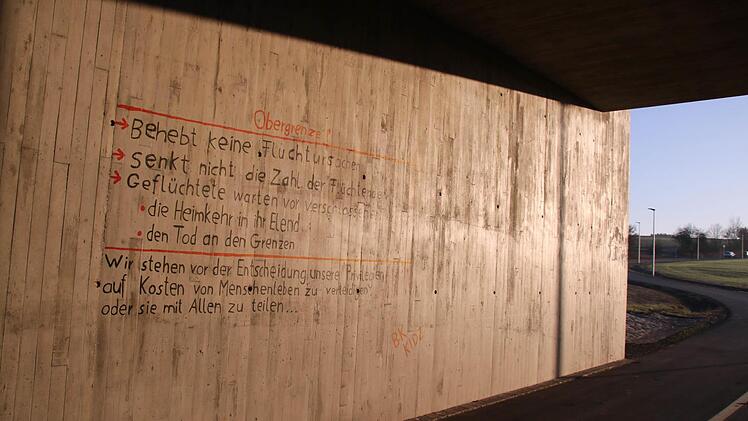 Obergrenze!
→ Behebt keine Fluchtursachen
→ senkt nicht die Zahl der Flüchtenden
→ Geflüchtete warten vor verschlossenen
• die Heimkehr in ihr Elend
• den Tod an den Grenzen
Wir stehen vor der Entscheidung unsere Privilegien
auf Kosten von Menschenleben zu verteidigen
oder sie mit Allen zu teilen...
BK
KIDZ